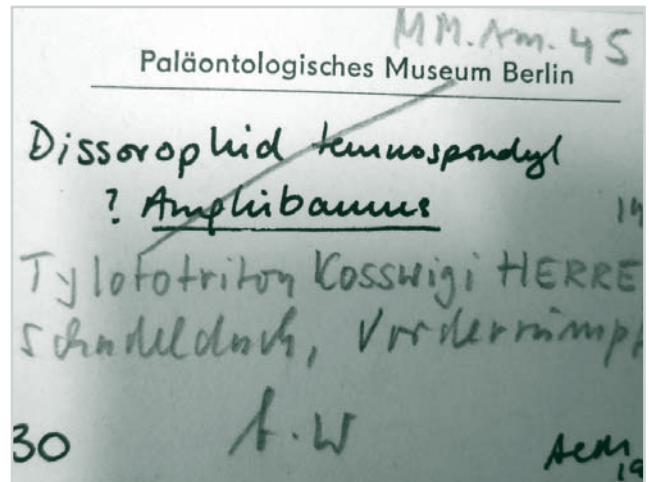 MM.Am. 45
Paläontologisches Museum Berlin
Dissorophid temnospondyl
? Amphibamus
19
Tylototriton Kosswigi HERRE
Schädeldach, Vorderrumpf
30 A.W
19